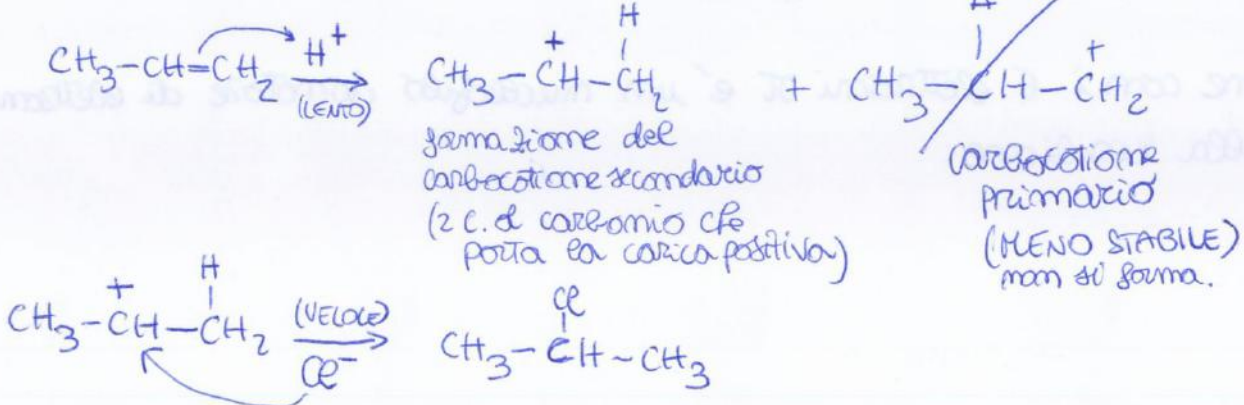 H H
CH3-CH=CH2 H+ (LENTO) CH3-CH+-CH2 + CH3 CH-CH2+
formazione del
carbocatione secondario
(2 C. al carbonio che
porta la carica positiva)
carbocatione
primario
(MENO STABILE)
non si forma.
H Cl
CH3-CH+-CH2 (VELOCE) Cl- CH3-CH-CH3